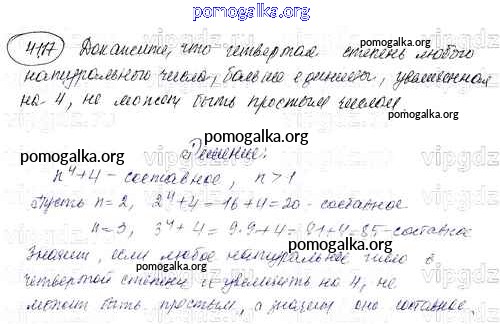 pomogalka.org
4117 Докажите, что четвертая степень любого
натурального числа, больше единицы, увеличенная
на 4, не может быть простым числом
pomogalka.org
pomogalka.org
Решение:
pomogalka.org
n⁴+4 - составное, n>1
Пусть n=2, 2⁴+4=16+4=20 - составное
n=3, 3⁴+4=9·9+4=81+4=85 - составное
pomogalka.org
Значит, если любое натуральное число в
четвертой степени и увеличить на 4, не
может быть простым, а значит оно составное.
pomogalka.org